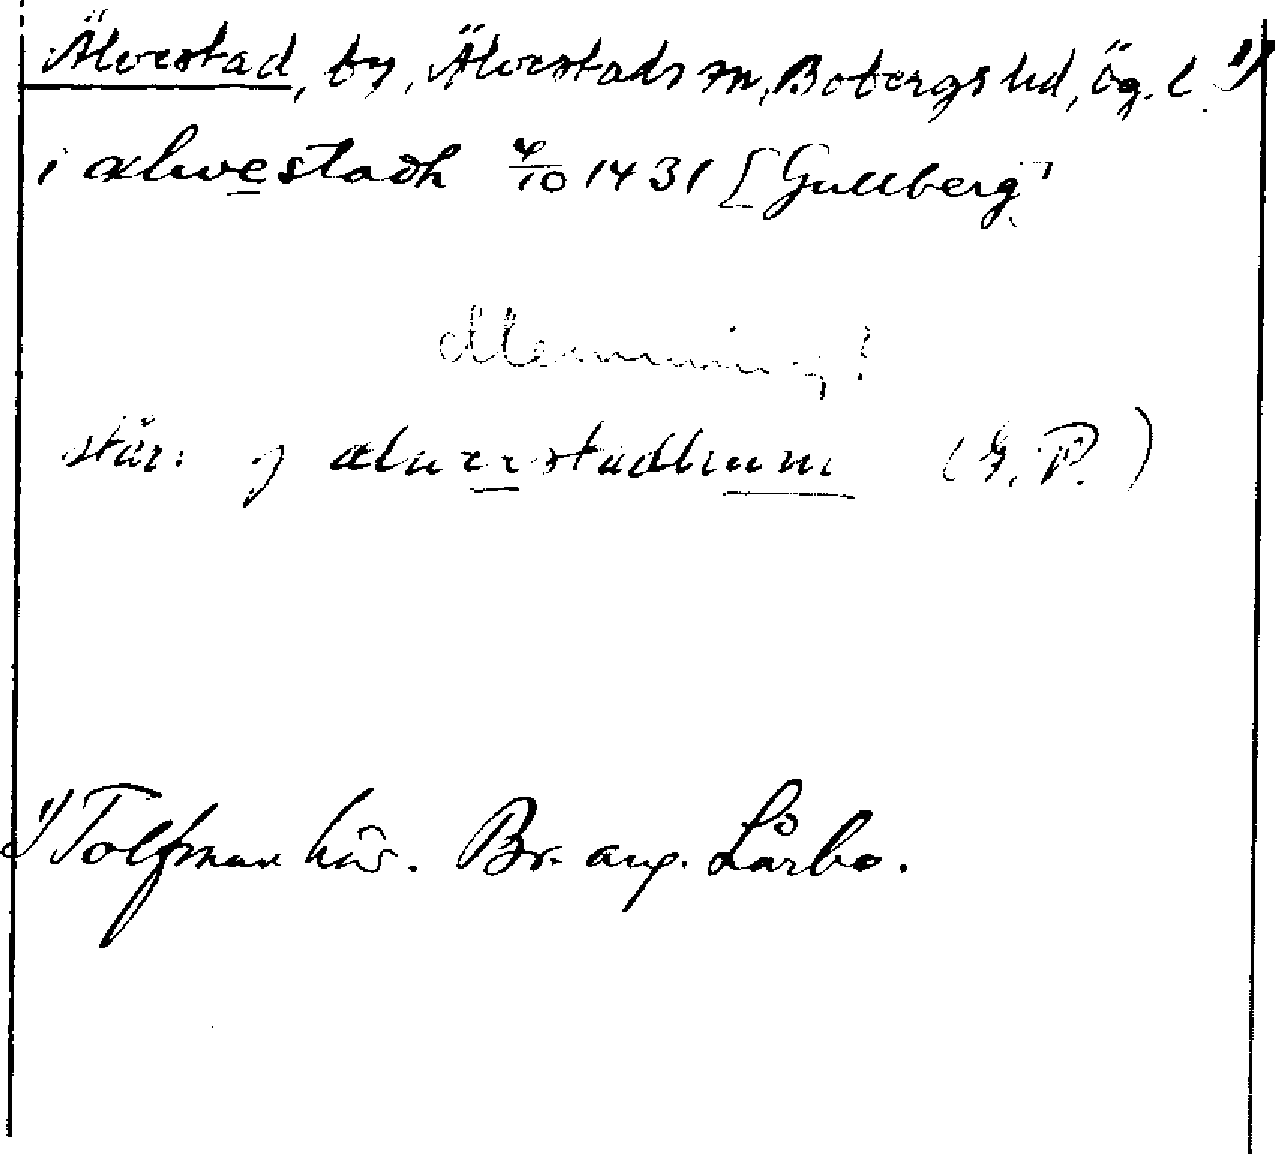 Älvestad, by, Älvestads sn, Bobergs hd, Ög. l. 1)
i ælwestadh 4/10 1431 [Gullberg]
står: j æluerstadhum (G. P.)
1) Tolfman här. Br. ang. Lårbo.